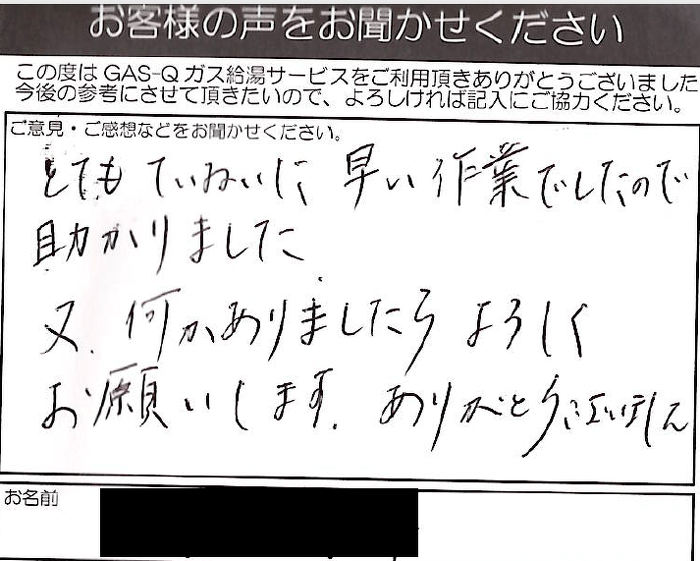 お客様の声をお聞かせください
この度は GAS-Q ガス給湯サービスをご利用頂きありがとうございました
今後の参考にさせて頂きたいので、よろしければ記入にご協力ください。
ご意見・ご感想などをお聞かせください。
とても ていねいに 早い 作業でしたので
助かりました
又、何かありましたら よろしく
お願いします。ありがとうございました
お名前